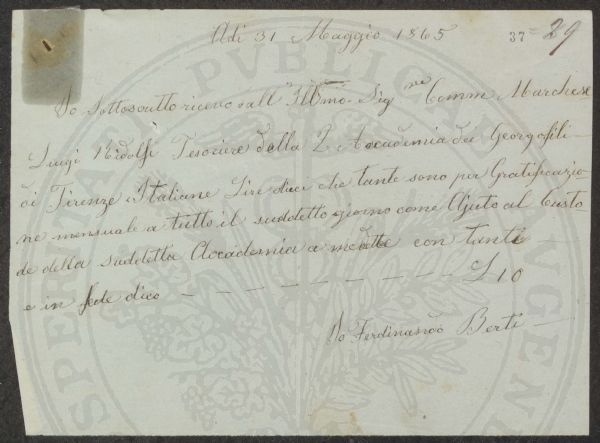 Adì 31 Maggio 1865
37= 29
Io Sottoscritto ricevo dall' Illmo. Signe Comm Marchese
Luigi Ridolfi Tesoriere della R Accademia dei Georgofili
di Firenze Italiane Lire dieci che tante sono per Gratificazio-
ne mensuale a tutto il suddetto giorno come Ajuto al Custo-
de della suddetta Accademia a me dette con tanti
e in fede dico — £ 10
Io Ferdinando Berti
PVBLICAE